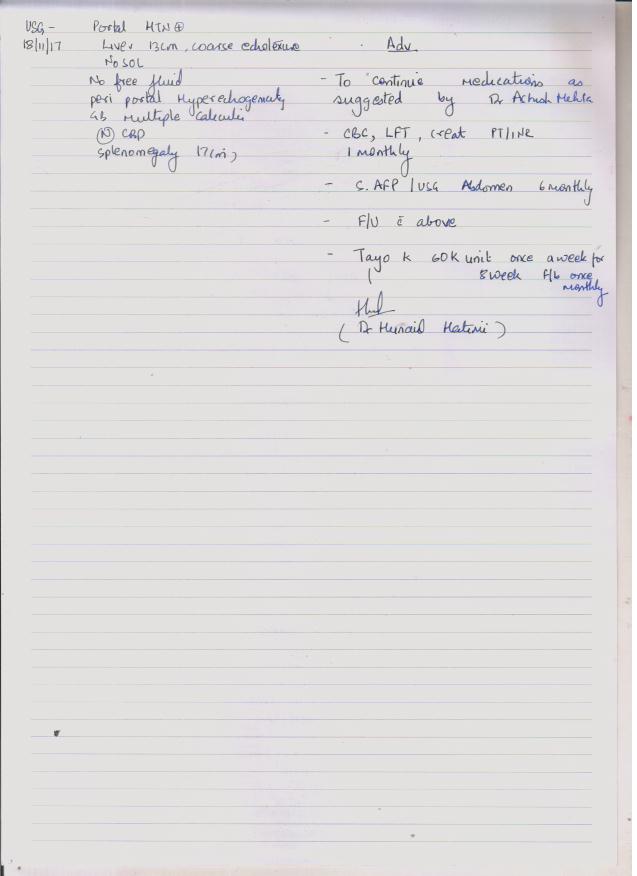 USG - Portal HTN ⊕
18/11/17 Liver 13cm, coarse echotexture
No SOL
No free fluid
peri portal Hyperechogenicity
GB Multiple calculi
Ⓝ CBD
Splenomegaly 17cm)
Adv.
- To continue medications as
suggested by Dr Ashish Mehta
- CBC, LFT, Creat PT/INR
1 monthly
- S. AFP / USG Abdomen 6 monthly
- F/U c̄ above
- Tayo k 60K unit once a week for
8 week F/b once
monthly
(Dr Hunaid Hatimi)